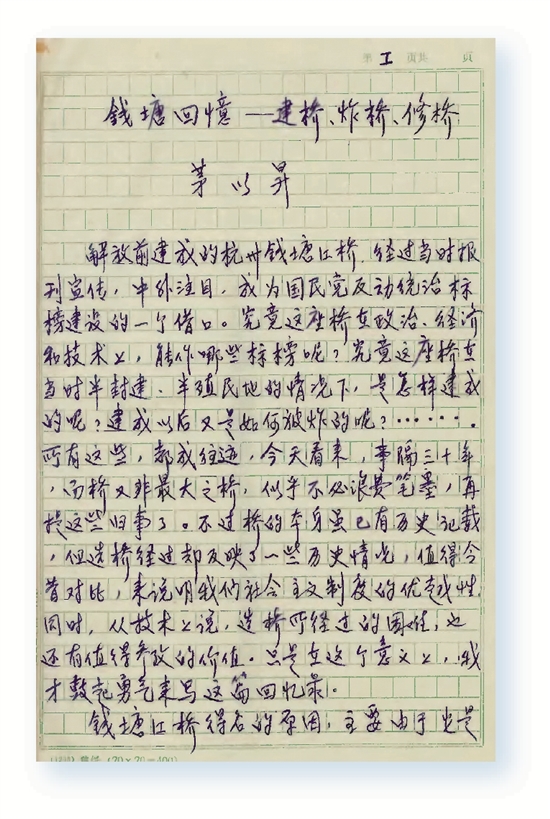 第 1 页共 页
钱塘回憶——建桥、炸桥、修桥
茅以昇
解放前建成的杭州钱塘江桥，经过当时报
刊宣传，中外注目，成为国民党反动统治标
榜建设的一个借口。究竟这座桥在政治、经济
和技术上，能作哪些标榜呢？究竟这座桥在
当时半封建、半殖民地的情况下，是怎样建成
的呢？建成以后又是如何被炸的呢？……。
所有这些，都成往迹，今天看来，事隔三十年
，而桥又非最大之桥，似乎不必浪费笔墨，再
提这些旧事了。不过桥的本身虽已有历史记载
，但造桥经过却反映了一些历史情况，值得今
昔对比，来说明我们社会主义制度的优越性
同时，从技术上说，造桥所经过的困难，也
还有值得参考的价值。只是在这个意义上，我
才鼓起勇气来写这篇回忆录。
钱塘江桥得名的原因，主要由于它是
(20×20=400)